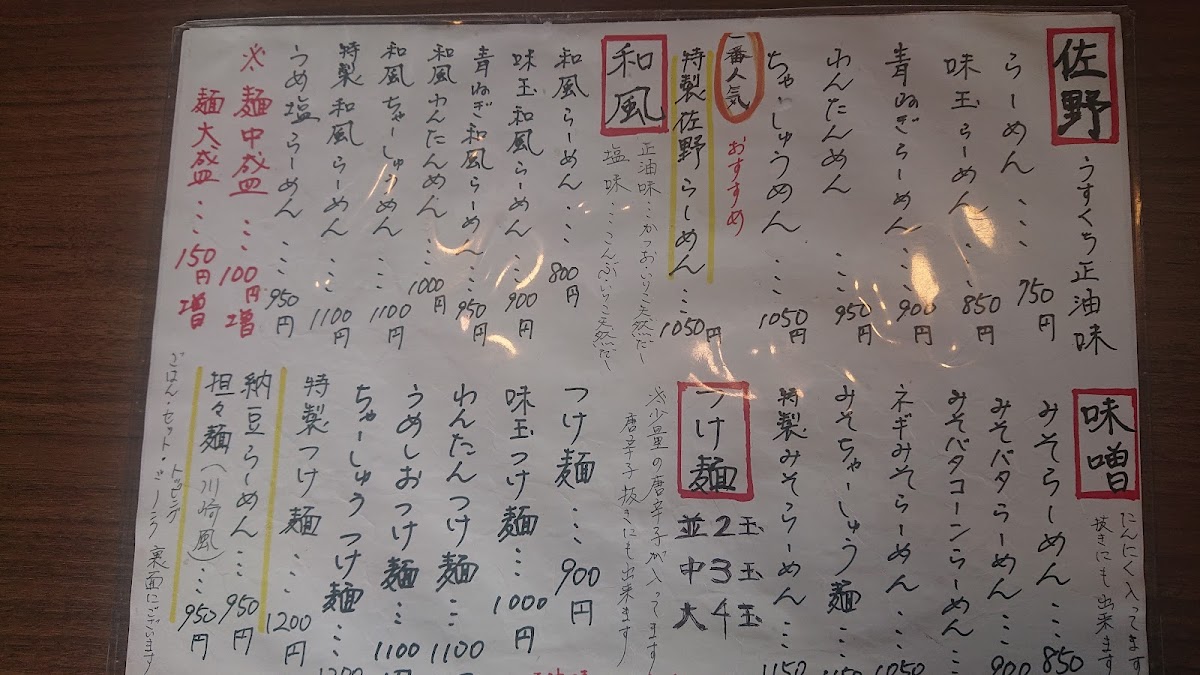 佐野 うすくち正油味
らーめん ・・・ 750円
味玉らーめん ・・・ 850円
青ねぎらーめん ・・・ 900円
わんたんめん ・・・ 950円
ちゃーしゅうめん ・・・ 1050円
一番人気 おすすめ
特製佐野らーめん ・・・ 1050円
和風
正油味・・・かつおいりこ天然だし
塩味・・・こんぶいりこ天然だし
和風らーめん ・・・ 800円
味玉和風らーめん ・・・ 900円
青ねぎ和風らーめん ・・・ 950円
和風わんたんめん ・・・ 1000円
和風ちゃーしゅうめん ・・・ 1100円
特製和風らーめん ・・・ 1100円
うめ塩らーめん ・・・ 950円
※麺中盛 ・・・ 100円増
麺大盛 ・・・ 150円増
味噌
にんにく入ってます
抜きにも出来ます
みそらーめん ・・・ 850
みそバタらーめん ・・・ 900
みそバタコーンらーめん ・・・
ネギみそらーめん ・・・ 1050
みそちゃーしゅう麺 ・・・ 1150
特製みそらーめん ・・・ 1150
つけ麺
並2玉
中3玉
大4玉
※少量の唐辛子が入ってます
唐辛子抜きにも出来ます
つけ麺 ・・・ 900円
味玉つけ麺 ・・・ 1000円
わんたんつけ麺 ・・・ 1100
うめしおつけ麺 ・・・ 1100円
ちゃーしゅうつけ麺 ・・・
特製つけ麺 ・・・ 1200円
納豆らーめん ・・・ 950円
担々麺(川崎風) ・・・ 950円
ごはん・セット・トッピング 裏面にございます